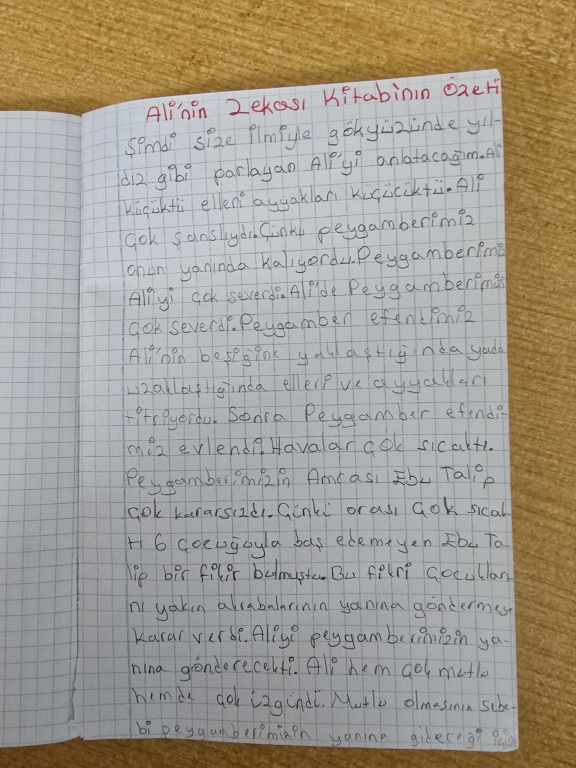 Ali'nin Zekası Kitabının Özeti
Şimdi size ilmiyle gökyüzünde yıl-
dız gibi parlayan Ali'yi anlatacağım. Ali
küçüktü elleri ayyakları küçücüktü. Ali
çok şanslıydı. Çünkü peygamberimiz
onun yanında kalıyordu. Peygamberimiz
Ali'yi çok severdi. Ali'de Peygamberimizi
çok severdi. Peygamber efendimiz
Ali'nin beşiğine yaklaştığında yada
uzaklaştığında elleri ve ayyakları
titriyordu. Sonra Peygamber efendi-
miz evlendi. Havalar çok sıcaktı.
Peygamberimizin Amcası Ebu Talip
çok kararsızdı. Çinkü orası çok sıcak
tı 6 çocuğuyla baş edemeyen Ebu Ta-
lip bir fikir bulmuştu. Bu fikri çocukları
nı yakın akrabalarının yanına göndermeye
karar verdi. Aliyi peygamberimizin ya-
nına gönderecekti. Ali hem çok mutlu
hemde çok üzgündi. Mutlu olmasının sebe-
bi peygamberimizin yanına gideceği için